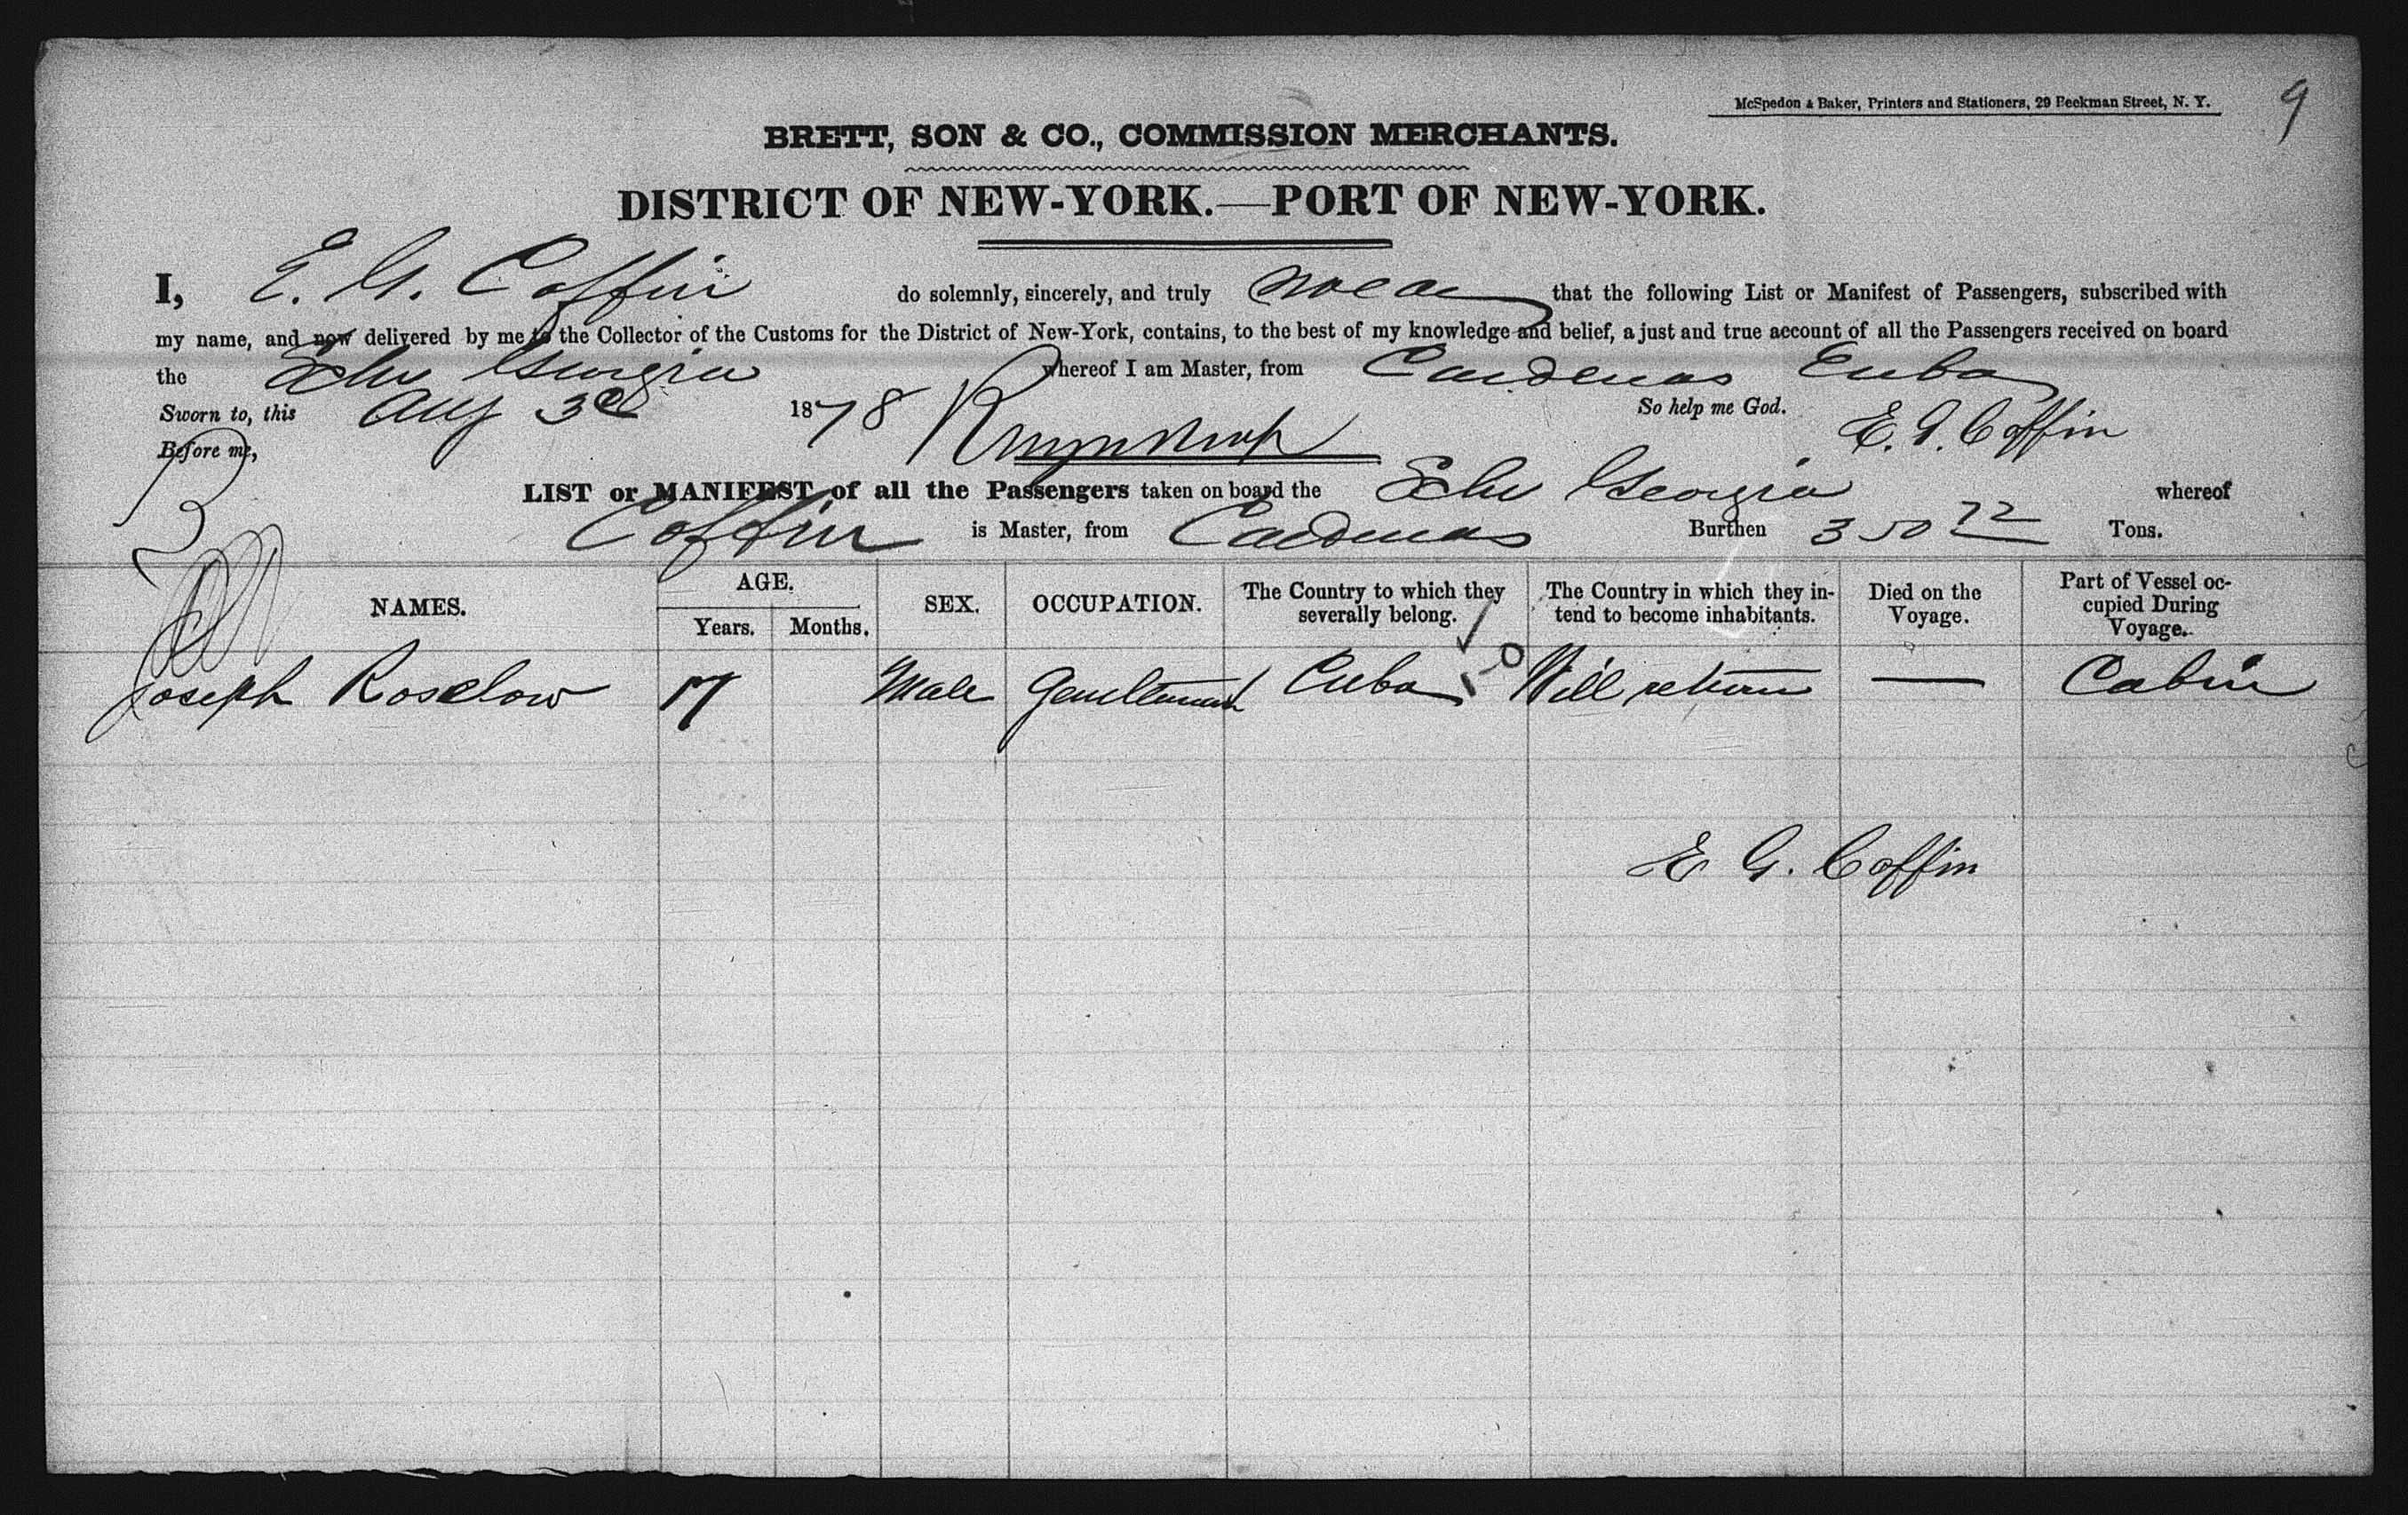 McSpedon & Baker, Printers and Stationers, 29 Beekman Street, N. Y.
9
BRETT, SON & CO., COMMISSION MERCHANTS.
DISTRICT OF NEW-YORK.—PORT OF NEW-YORK.
I, E. G. Coffin do solemnly, sincerely, and truly swear that the following List or Manifest of Passengers, subscribed with
my name, and now delivered by me to the Collector of the Customs for the District of New-York, contains, to the best of my knowledge and belief, a just and true account of all the Passengers received on board
the Schr Georgia whereof I am Master, from Cardenas Cuba
Sworn to, this Aug 3d 1878 So help me God.
Before me, E. G. Coffin
LIST or MANIFEST of all the Passengers taken on board the Schr Georgia whereof
Coffin is Master, from Cardenas Burthen 350 72 Tons.
NAMES. AGE. Years. Months. SEX. OCCUPATION. The Country to which they severally belong. The Country in which they intend to become inhabitants. Died on the Voyage. Part of Vessel occupied During Voyage.
Joseph Roselow 17 Male Gentleman Cuba Will return — Cabin
E G. Coffin